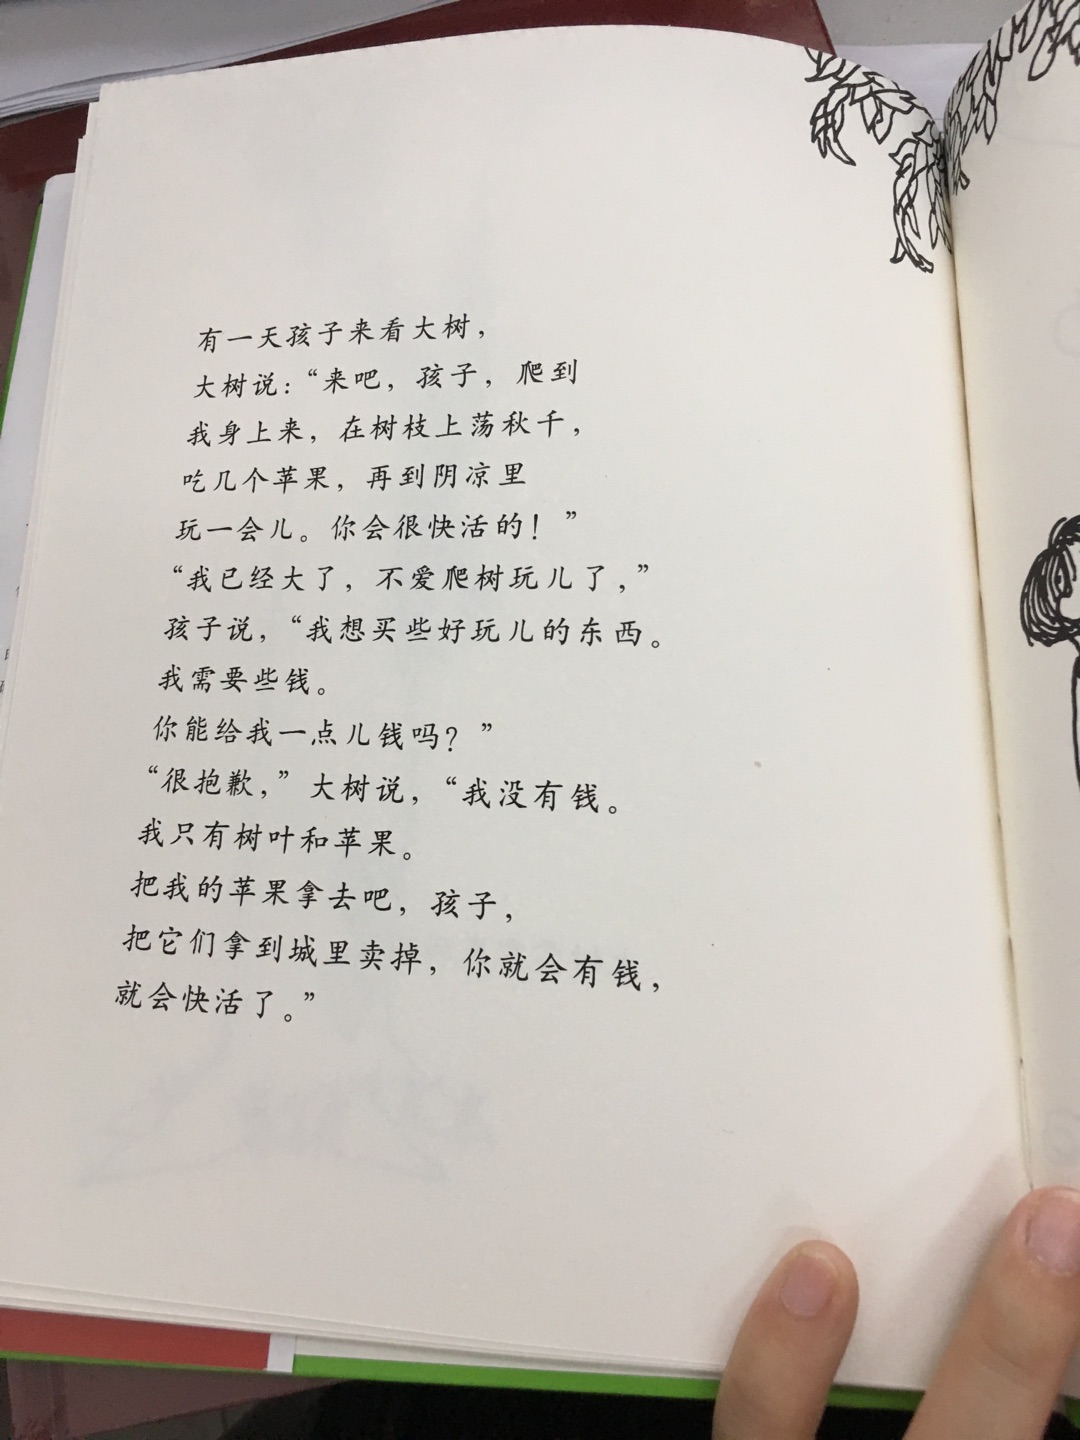 有一天孩子来看大树，
大树说：“来吧，孩子，爬到
我身上来，在树枝上荡秋千，
吃几个苹果，再到阴凉里
玩一会儿。你会很快活的！”
“我已经大了，不爱爬树玩儿了，”
孩子说，“我想买些好玩儿的东西。
我需要些钱。
你能给我一点儿钱吗？”
“很抱歉，”大树说，“我没有钱。
我只有树叶和苹果。
把我的苹果拿去吧，孩子，
把它们拿到城里卖掉，你就会有钱，
就会快活了。”